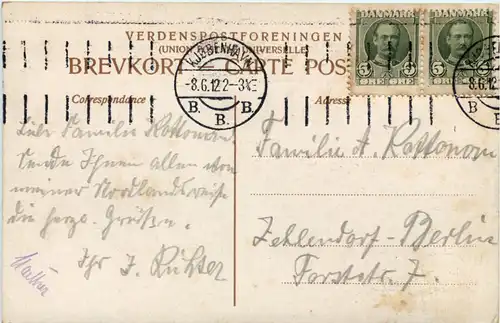 VERDENSPOSTFORENINGEN
(UNION POSTALE UNIVERSELLE)
BREVKORT - CARTE POSTALE
KJØBENHAVN
-8.6.12 2-3½E
B. B.
B.
DANMARK
5 5
ØRE
DANMARK
5 5
ØRE
8.6.12
B
Correspondance
Adresse
Liebe Familie Rottonom.
Sende Ihnen allen von
meiner Nordlandsreise
die herzl. Grüßen.
Ihr J. Richter
Familie A. Rottonom
Zehlendorf-Berlin
Forststr. 7.